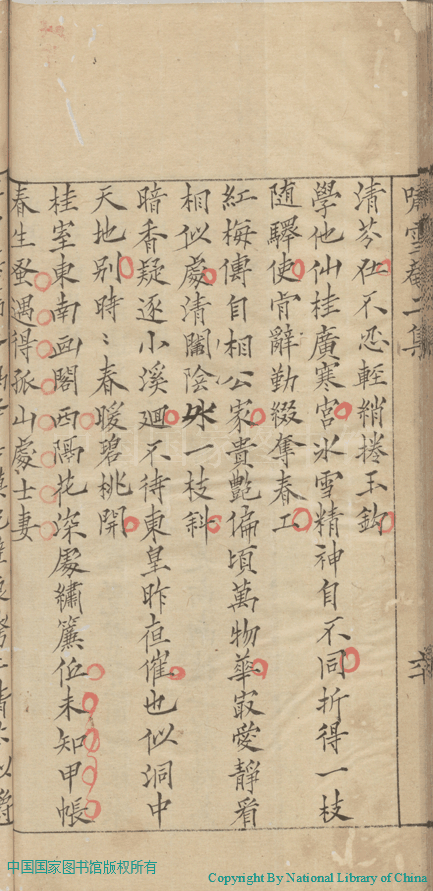 嘯雪菴二集
清芬狂不忍輕綃捲玉鈎
學他仙桂廣寒宮氷雪精神自不同折得一枝
隨驛使肯辭勤綴奪春工
紅梅傳自相公家貴艷偏頃萬物華㝡愛靜看
相似處清闇陰一枝斜
暗香疑逐小溪迴不待東皇昨夜催也似洞中
天地别時〻春暖碧桃開
桂室東南画閣西隔花深處繡簾低未知甲帳
春生蚤遇得孤山處士妻
中国国家图书馆版权所有
Copyright By National Library of China